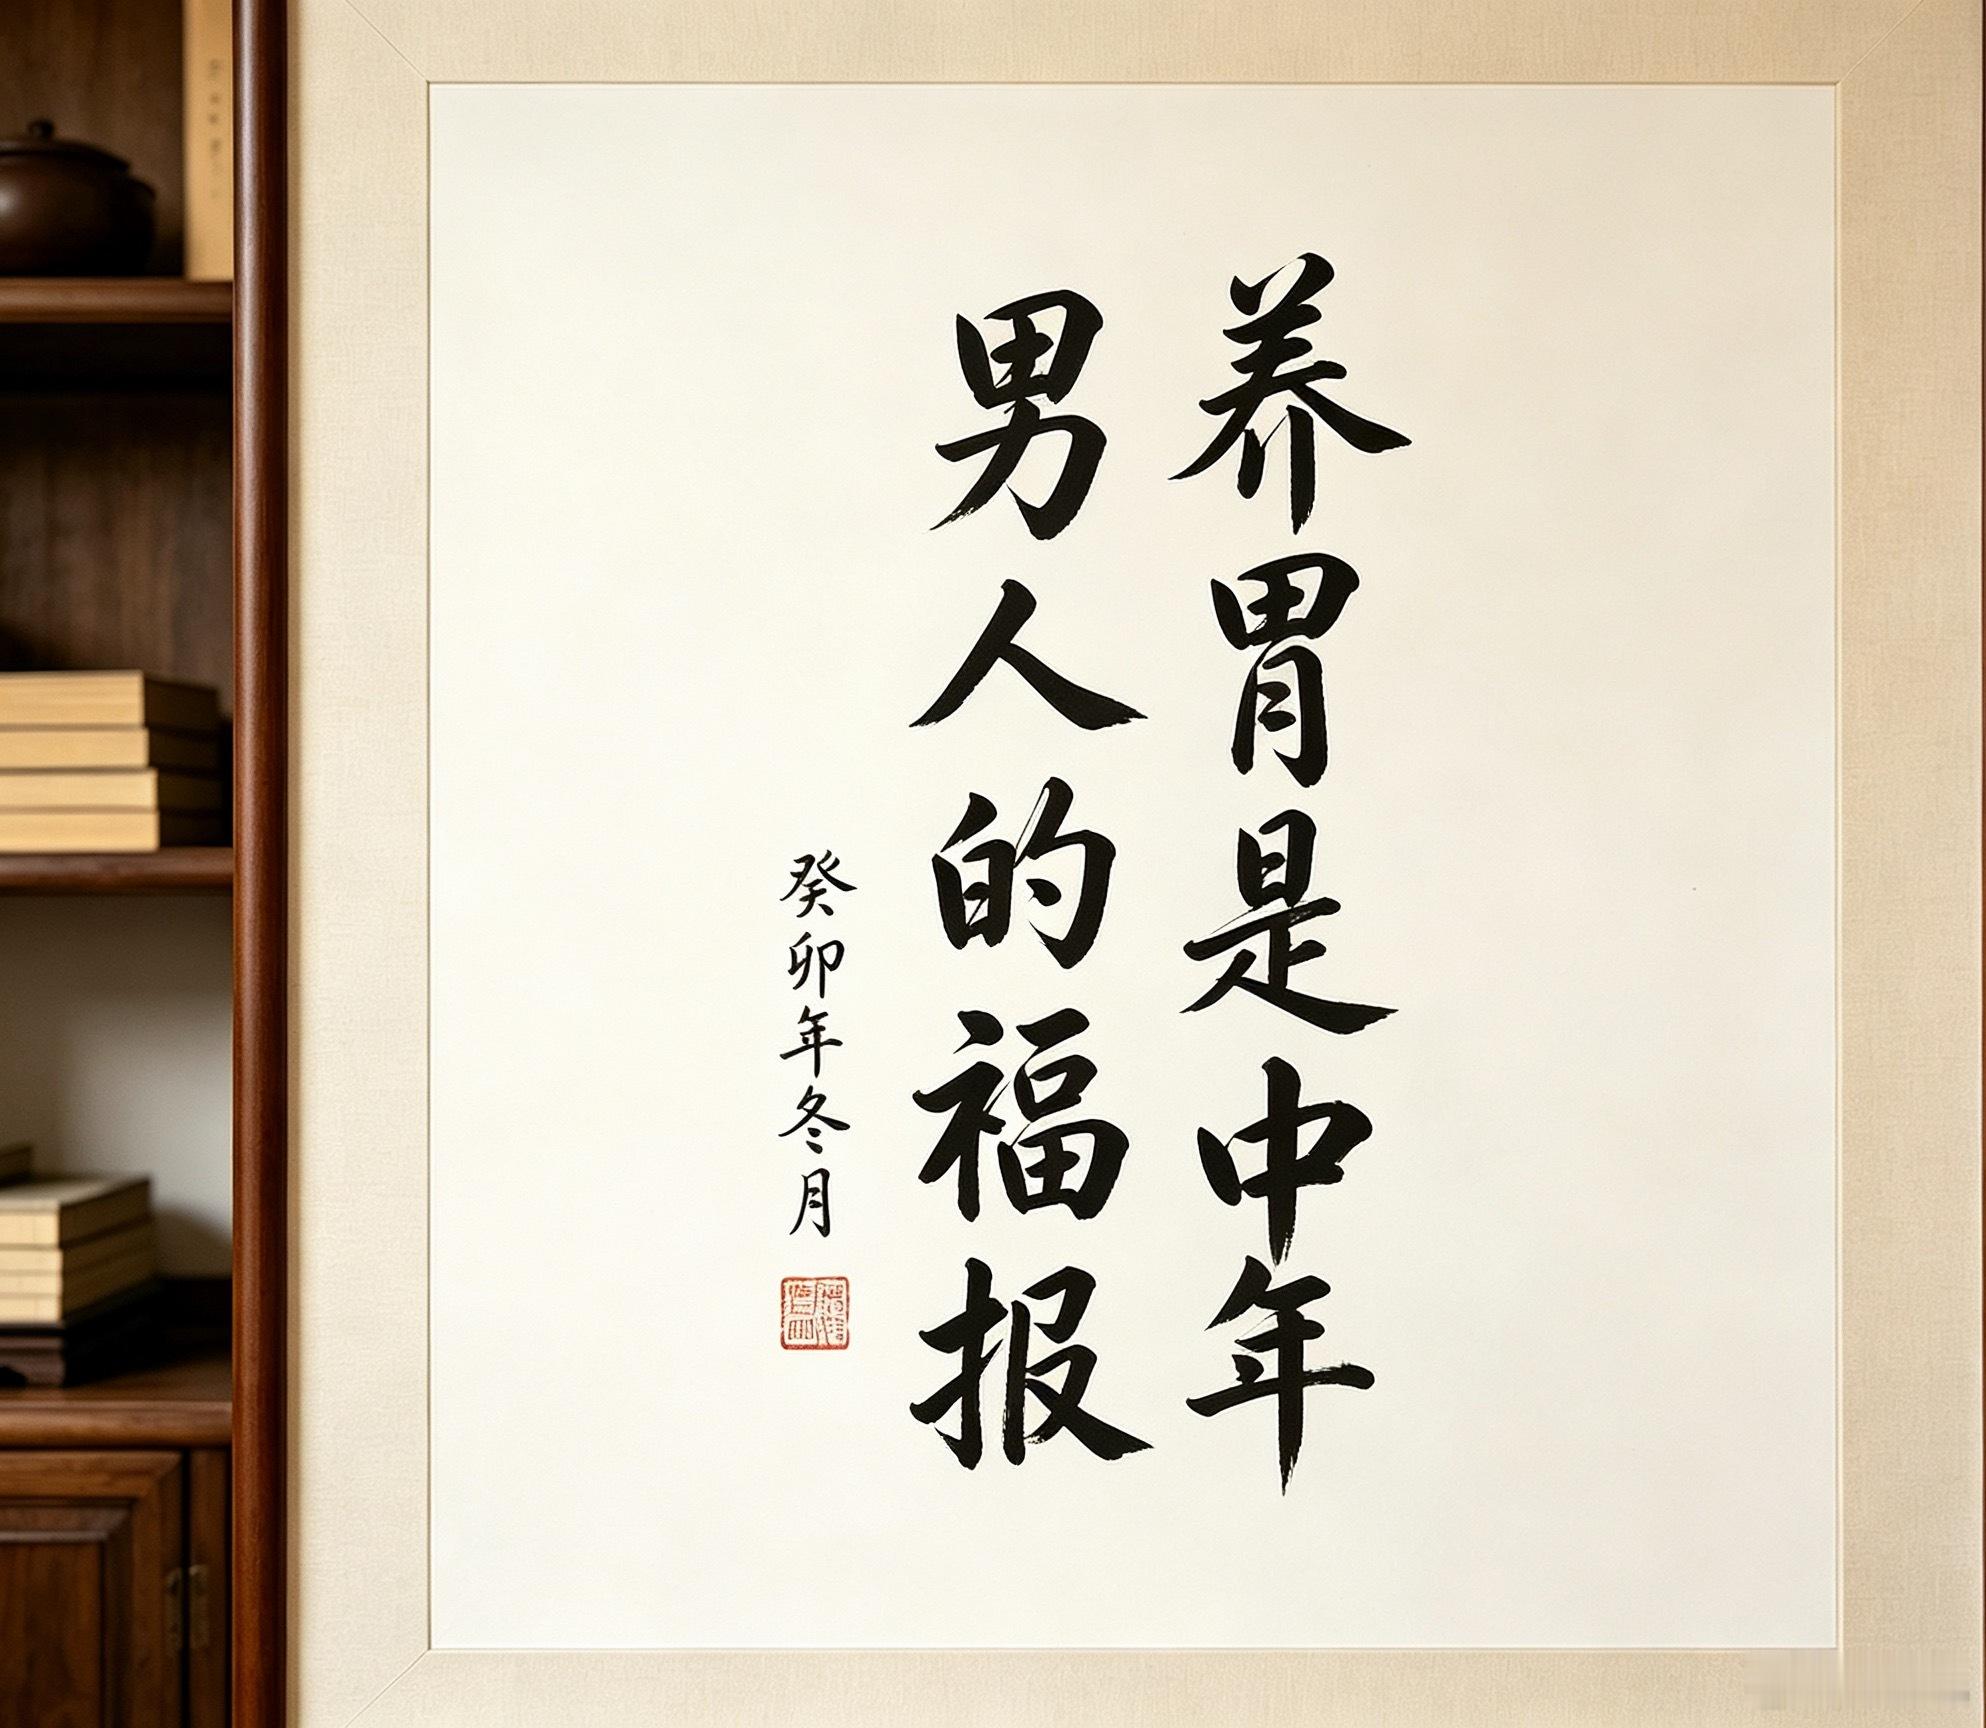 养胃是中年
男人的福报
癸卯年冬月